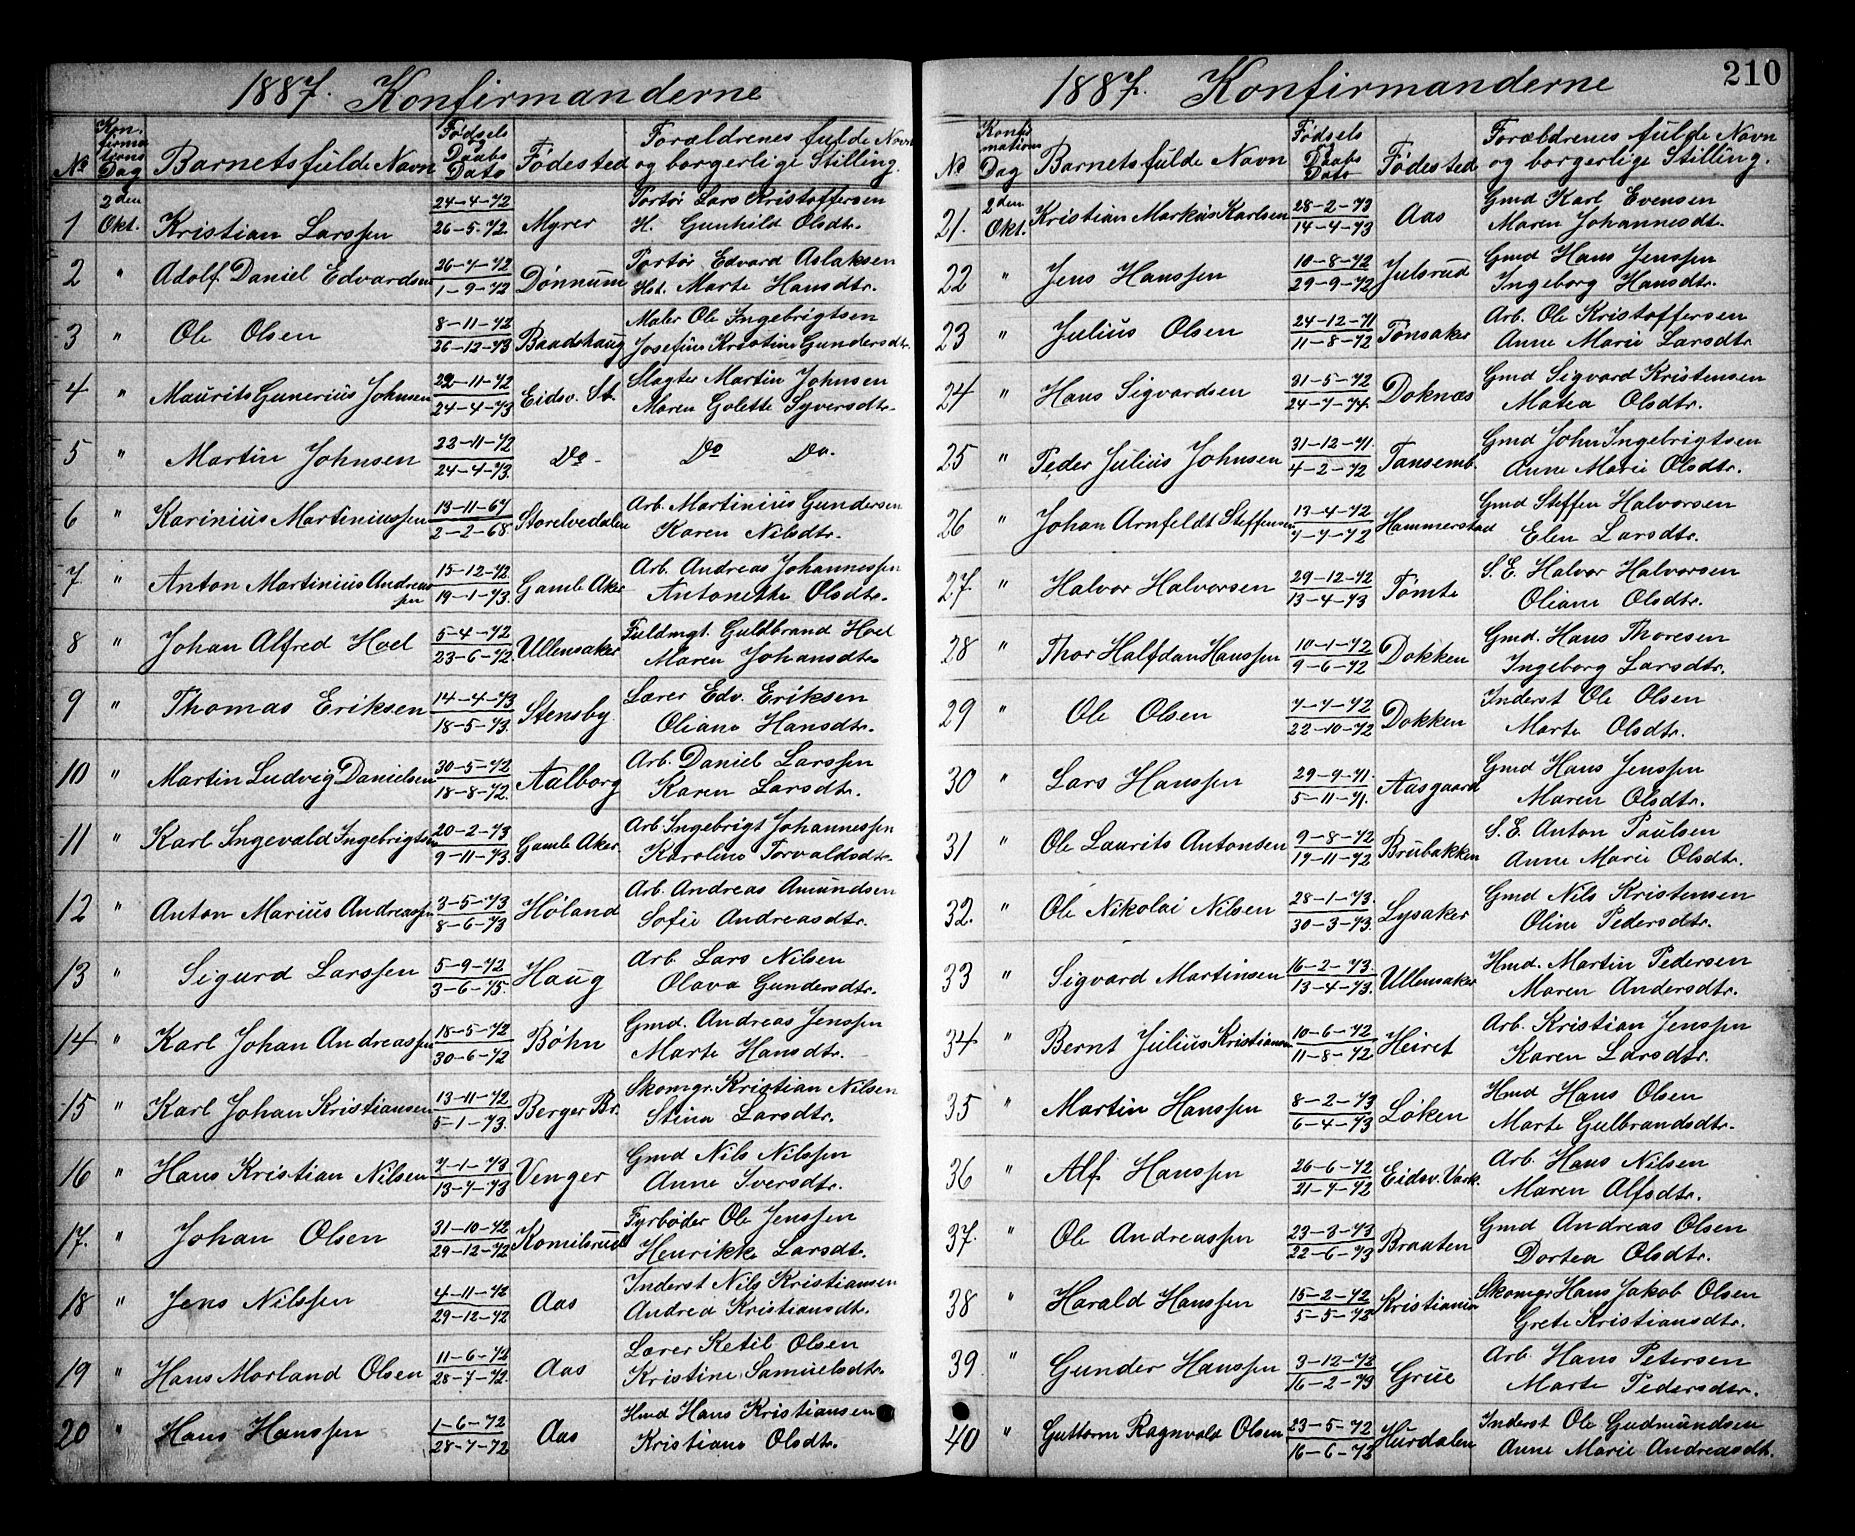 1887. Konfirmanderne
No Konfirmationsdag Barnets fulde Navn Fødsels og Daabs Dato Fødested Forældrenes fulde Navn og borgerlige Stilling.
1 2den Okt. Kristian Larssen 24-4-72 26-5-72 Myrer Portør Lars Kristoffersen
H. Gunhild Olsdtr.
2 " Adolf Daniel Edvardsen 26-7-72 1-9-72 Dønnum Portør Edvard Aslaksen
Hst. Marte Hansdtr.
3 " Ole Olsen 8-11-72 26-12-73 Baadshaug Maler Ole Ingebrigtsen
Josefine Kristine Gundersdtr.
4 " Maurits Gunerius Johnsen 22-11-72 24-4-73 Eidsv. St. Slagter Martin Johnsen
Maren Golette Syversdtr.
5 " Martin Johnsen 22-11-72 24-4-73. Do. Do Do.
6 " Karinius Martiniussen 13-11-67 2-2-68 Storelvedalen Arb. Martinius Gundersen
Karen Nilsdtr.
7 " Anton Martinius Andreassen 15-12-72 19-1-73. Gamle Aker Arb. Andreas Johannessen
Antonette Olsdtr.
8 " Johan Alfred Hoel 5-4-72 23-6-72. Ullensaker Fuldmgt. Guldbrand Hoel
Maren Johansdtr.
9 " Thomas Eriksen 14-4-73 18-5-73. Stensby Lærer Edv. Eriksen
Oliane Hansdtr.
10 " Martin Ludvig Danielsen 30-5-72 18-8-72. Aalborg Arb. Daniel Larssen
Karen Larsdtr.
11 " Karl Ingevald Ingebrigtsen 20-2-73 9-11-73. Gamle Aker Arb. Ingebrigt Johannessen
Karoline Torvaldsdtr.
12 " Anton Marius Andreassen 3-5-73 8-6-73 Høland Arb. Andreas Amundsen
Sofie Andreasdtr.
13 " Sigurd Larssen 5-9-72 3-6-75. Haug Arb. Lars Nilsen
Olava Gundersdtr.
14 " Karl Johan Andreassen 18-5-72 30-6-72 Bøhn Gmd. Andreas Jenssen
Marte Hansdtr.
15 " Karl Johan Kristiansen 13-11-72 5-1-73. Berger Br. Skomgr. Kristian Nilsen
Stina Larsdtr.
16 " Hans Kristian Nilsen 7-1-73 13-7-73 Venger Gmd Nils Nilssen
Anne Iversdtr.
17. " Johan Olsen 31-10-72 29-12-72 Komilsrud Fyrbøder Ole Jenssen
Henrikke Larsdt.
18 " Jens Nilssen 4-11-72 29-12-72 Aas Inderst Nils Kristiansen
Andrea Kristiansdt.
19 " Hans Morland Olsen 11-6-72 28-7-72. Aas Lærer Ketil Olsen
Kristine Samuelsdtr.
20 " Hans Hanssen 1-6-72 28-7-72 Aas Hmd Hans Kristiansen
Kristiane Olsdtr.
1887. Konfirmanderne 210
No Konfirmations Dag Barnets fulde Navn Fødsels Daabs Dato Fødested Forældrenes fulde Navn og borgerlige Stilling.
21. 2den Okt. Kristian Markus Karlsen 28-2-73 14-4-73 Aas Gmd Karl Evensen
Maren Johannesdt.
22 " Jens Hanssen 10-8-72 29-9-72 Julsrud Gmd Hans Jenssen
Ingeborg Hansdtr.
23 " Julius Olsen 24-12-71 11-8-72 Tønsaker Arb. Ole Kristoffersen
Anne Marie Larsdtr
24 " Hans Sigvardsen 31-5-72 24-7-74. Doknæs Gmd Sigvard Kristensen
Matea Olsdtr.
25 " Peder Julius Johnsen 31-12-71. 4-2-72 Tansemb. Gmd John Ingebrigtsen
Anne Marie Olsdtr.
26 " Johan Arnfeldt Steffensen 13-4-72 7-7-72 Hammerstad Gmd Steffen Halvorsen
Elen Larsdtr.
27. " Halvor Halvorsen 29-12-72 13-4-73 Tømte S.E. Halvor Halvorsen
Oliane Olsdtr.
28 " Thor Halfdan Hanssen 10-1-72 9-6-72 Dokken Gmd. Hans Thoresen
Ingeborg Larsdtr.
29 " Ole Olsen 7-7-72 22-10-72 Dokken Inderst Ole Olsen
Marte Olsdtr.
30 " Lars Hanssen 29-9-71. 5-11-71. Aasgaard Gmd Hans Jenssen
Maren Olsdtr.
31 " Ole Laurits Antonsen 9-8-72 17-11-72 Brubakken S.E. Anton Paulsen
Anne Marie Olsdtr.
32. " Ole Nikolai Nilsen 28-1-73. 30-3-73. Lysaker Gmd Nils Kristensen
Oline Pedersdtr.
33 " Sigvard Martinsen 16-2-73. 13-4-73. Ullensaker Hmd. Martin Pedersen
Maren Andersdtr.
34 " Bernt Julius Kristiansen 10-6-72 11-8-72 Heiret Arb. Kristian Jenssen
Karen Larsdtr.
35 " Martin Hanssen 8-2-73 6-4-73 Løken Hmd Hans Olsen
Marte Gulbrandsdtr.
36 " Alf Hanssen 26-6-72 21-7-72 Eidsv. Værk. Arb. Hans Nilsen
Maren Alfsdtr.
37. " Ole Andreassen 23-3-73 22-6-73 Braaten Gmd Andreas Olsen
Dortea Olsdtr.
38 " Harald Hanssen 15-2-72 5-5-72 Kristiania Skomgr Hans Jakob Olsen
Grete Kristiansdtr.
39 " Gunder Hanssen 3-12-72 16-2-73 Grue Arb. Hans Petersen
Marte Pedersdtr.
40 " Guttorm Ragnvald Olsen 23-5-72 16-6-72 Hurdalen Inderst Ole Gudmundsen
Anne Marie Andreasdt.